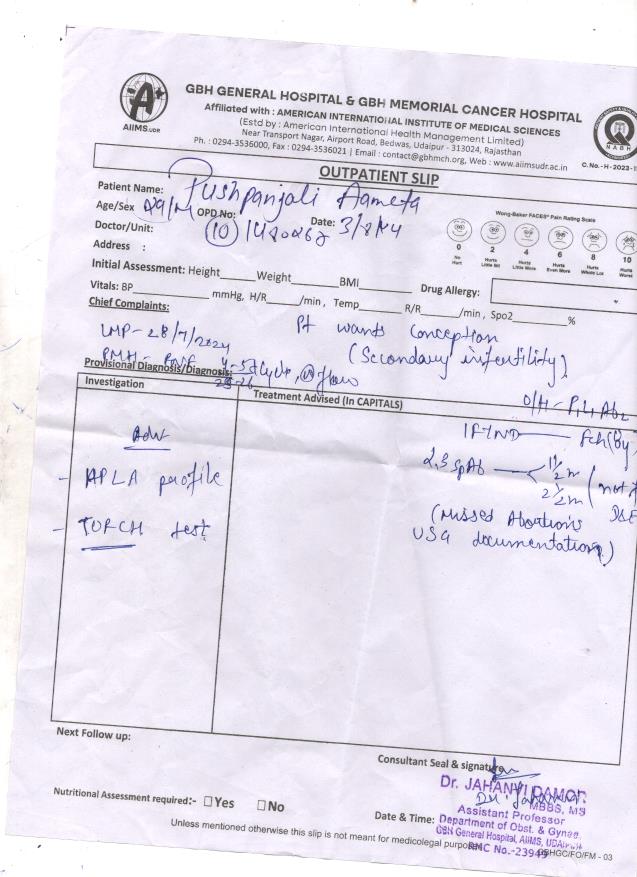 GBH GENERAL HOSPITAL & GBH MEMORIAL CANCER HOSPITAL
Affiliated with : AMERICAN INTERNATIONAL INSTITUTE OF MEDICAL SCIENCES
(Estd by : American International Health Management Limited)
Near Transport Nagar, Airport Road, Bedwas, Udaipur - 313024, Rajasthan
Ph. : 0294-3536000, Fax : 0294-3536021 | Email : contact@gbhmch.org, Web : www.aiimsudr.ac.in
AIIMS.UDR
NABH
C. No.-H-2023-1
OUTPATIENT SLIP
Patient Name: Pushpanjali Aameta
Age/Sex 29/ OPD.No: Date: 3/8/
Doctor/Unit: (10)
Address :
Wong-Baker FACES® Pain Rating Scale
0 2 4 6 8 10
No Hurt Hurts Little Bit Hurts Little More Hurts Even More Hurts Whole Lot Hurts Worst
Initial Assessment: Height Weight BMI Drug Allergy:
Vitals: BP mmHg, H/R /min , Temp R/R /min , Spo2 %
Chief Complaints:
Pt wants conception
LMP - 28/7/2024 (Secondary infertility)
PMH - 4-5d cycle, flow
25-26
Provisional Diagnosis/Diagnosis:
O/H - P1L1Ab2
Investigation Treatment Advised (In CAPITALS)
Adv
IFTND
- APLA profile
2,3 SpAb 1 1/2 m
2 1/2 m (not
- TORCH test
(Missed Abortions
USG documentation)
Next Follow up:
Consultant Seal & signature
Dr. JAHANVI DAMOR
MBBS, MS
Assistant Professor
Department of Obst. & Gynae.
GBH General Hospital, AIIMS, UDAIPUR
RMC No.-23949
Nutritional Assessment required:- Yes No
Date & Time:
Unless mentioned otherwise this slip is not meant for medicolegal purpose
GBHGC/FO/FM - 03